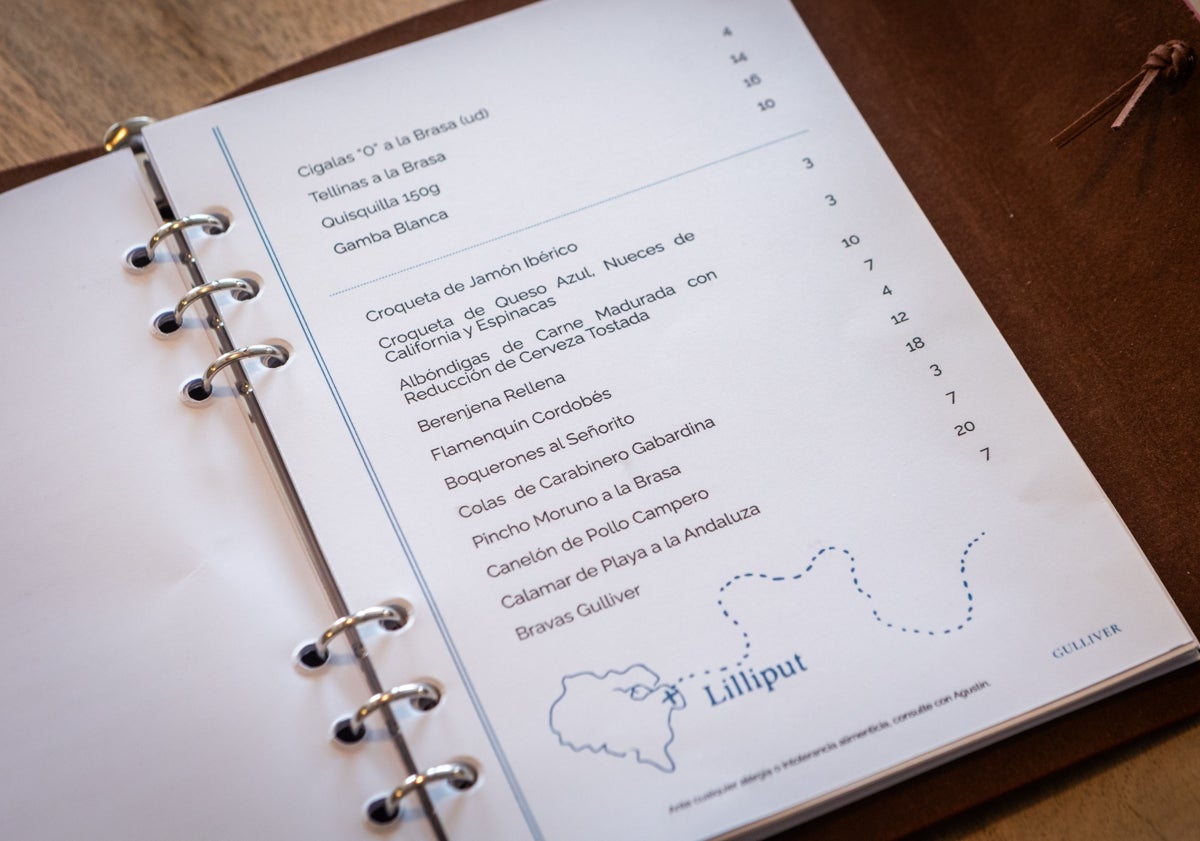 Cigalas "0" a la Brasa (ud) 4
Tellinas a la Brasa 14
Quisquilla 150g 16
Gamba Blanca 10
Croqueta de Jamón Ibérico 3
Croqueta de Queso Azul, Nueces de 3
California y Espinacas
Albóndigas de Carne Madurada con 10
Reducción de Cerveza Tostada
Berenjena Rellena 7
Flamenquín Cordobés 4
Boquerones al Señorito 12
Colas de Carabinero Gabardina 18
Pincho Moruno a la Brasa 3
Canelón de Pollo Campero 7
Calamar de Playa a la Andaluza 20
Bravas Gulliver 7
Lilliput
GULLIVER
Ante cualquier alergia o intolerancia alimenticia, consulte con Agustín.